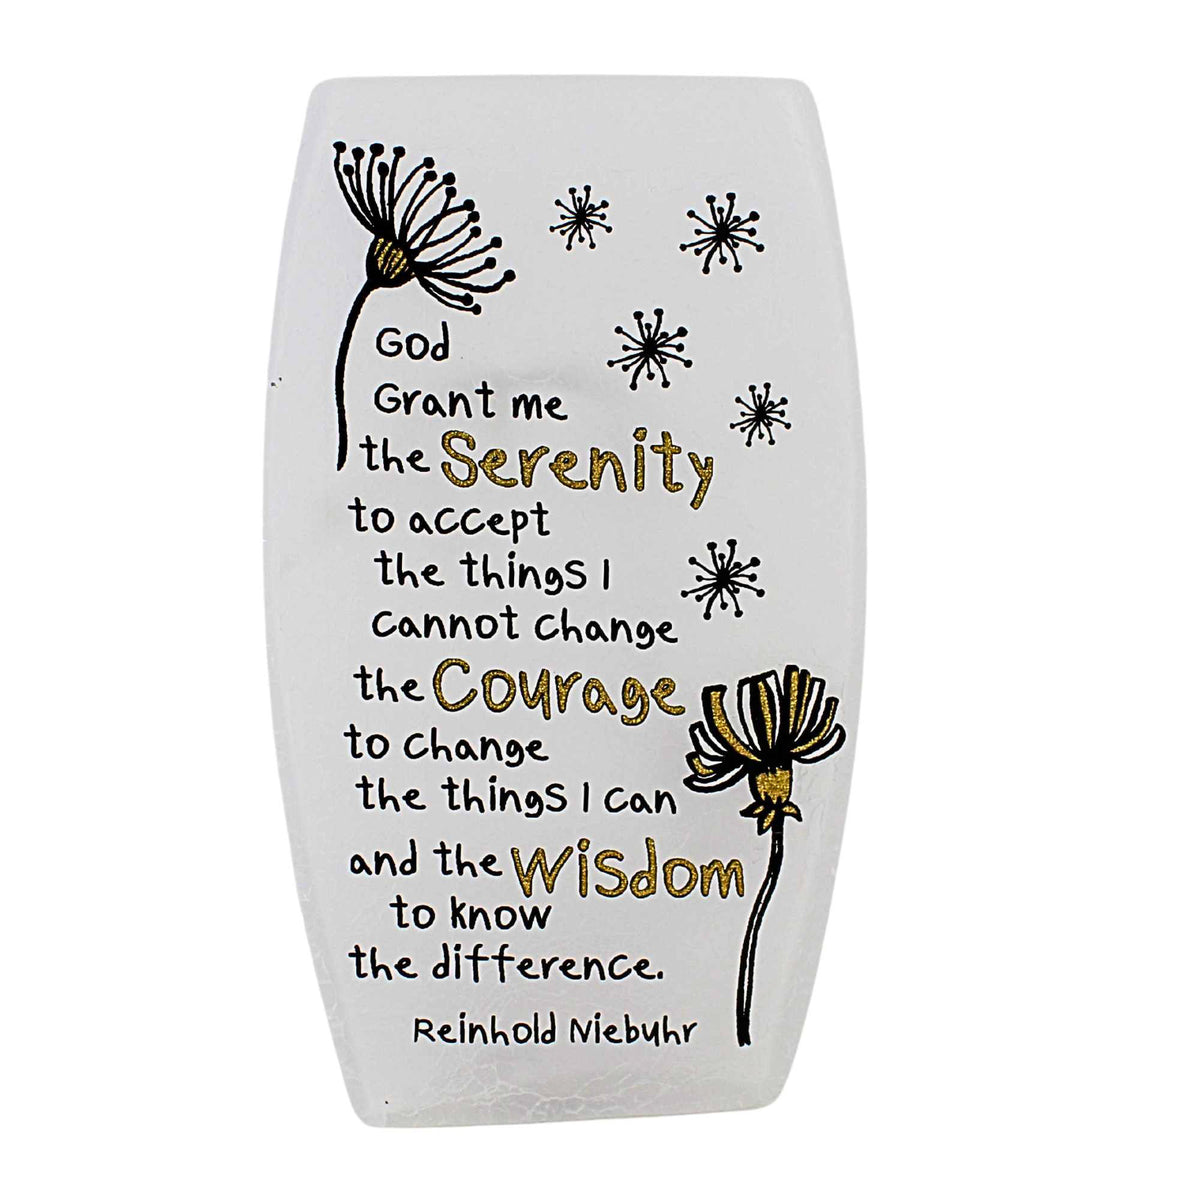 God
Grant me
the Serenity
to accept
the things I
cannot change
the Courage
to change
the things I can
and the Wisdom
to know
the difference.
Reinhold Niebuhr